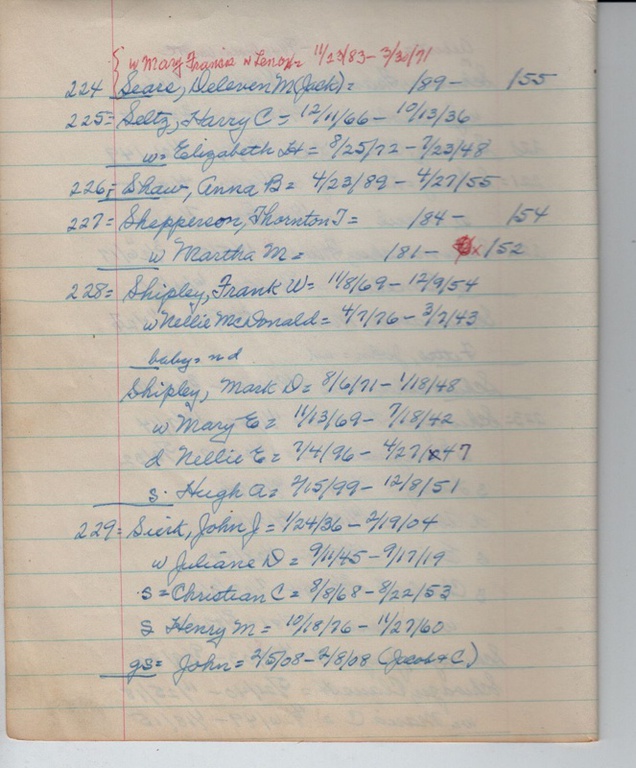 { w Mary Francis w Lenox = 11/23/83 - 3/30/71
224 Sears, Deleven M (Jack) = /89 - /55
225 = Seltz, Harry C = 12/11/66 - 10/13/36
w = Elizabeth H = 8/25/72 - 7/23/48
226 = Shaw, Anna B = 4/23/89 - 4/27/55
227 = Shepperson, Thornton T = /84 - /54
w Martha M = /81 - /52
228 = Shipley, Frank W = 11/8/69 - 12/9/54
w Nellie McDonald = 4/7/76 - 3/2/43
baby = nd
Shipley, Mark D = 8/6/71 - 1/18/48
w Mary E = 11/13/69 - 7/18/42
d Nellie E = 7/4/96 - 4/27/47
s. Hugh A = 2/15/99 - 12/8/51
229 = Sierk, John J = 1/24/36 - 2/19/04
w Juliane D = 9/11/45 - 9/17/19
s = Christian C = 8/8/68 - 8/22/53
s Henry M = 10/18/76 - 11/27/60
gs = John = 2/5/08 - 2/8/08 (Jacob & C)